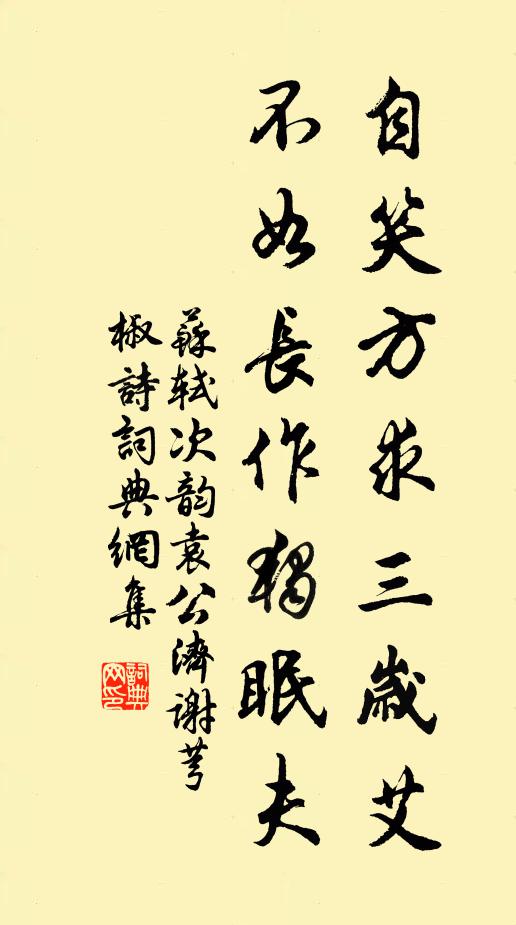 自笑方求三歲艾
不如長作獨眠夫
蘇軾次韵袁公濟謝芎
椒詩詞典網集
詞典
网印